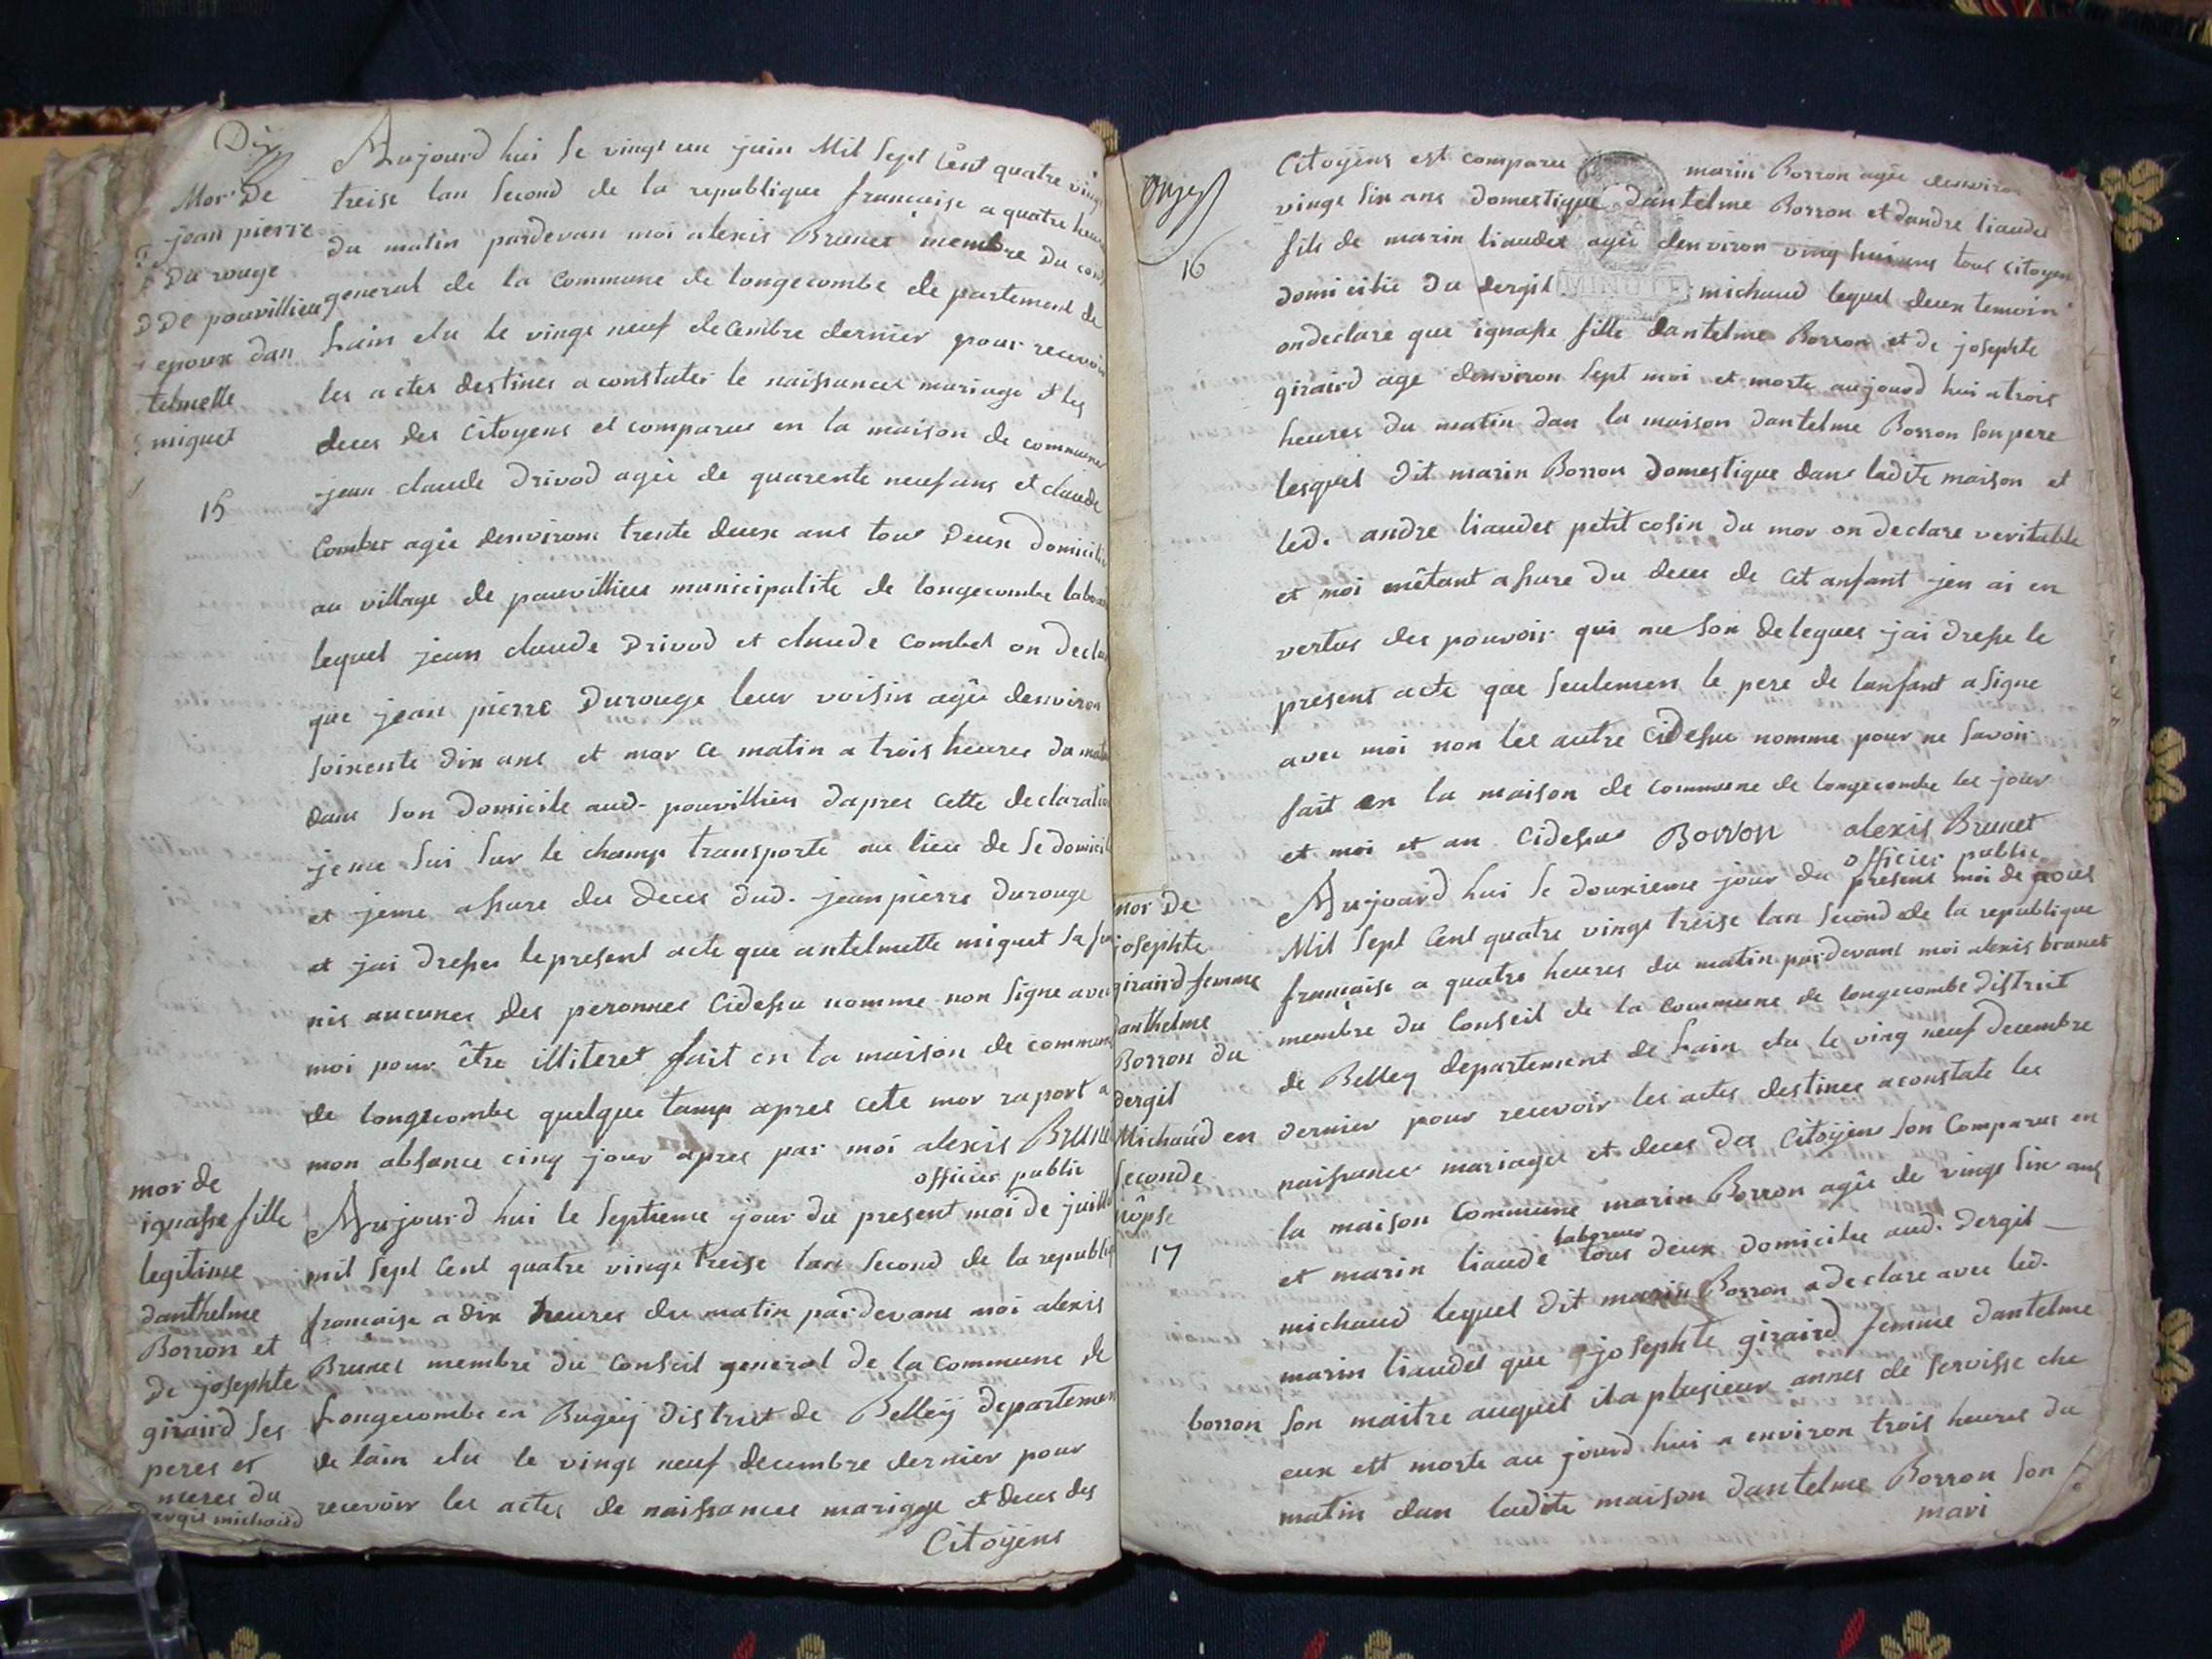 Dix
Mor De
jean pierre
Du rouge
De pouvillieu
epoux dan
telmette
miguet
15
Aujourd hui le vingt un juin Mil Sept Cent quatre vingt
treise lan Second de la republique francaise a quatre heure
du matin pardevan moi alexis Brunet membre Du
general de la Commune de longecombe departement de
Lain elu le vingt neuf decembre dernier pour recevoir
les actes destines a constater le naissances mariage et les
deces des Citoyens et comparus en la maison de commune
jean claude Drivod agée de quarente neuf ans et claude
Combet agée denvirons trente deux ans tous Deux Domicilie
au village de pouvillieu municipalite de longecombe
lequel jean claude Drivod et claude Combet on
que jean pierre Durouge leur voisin agée denviron
soixente dix ans et mor ce matin a trois heures du matin
dans son Domicile aud. pouvillieu dapres cette declaration
jeme sui sur le champ transporte au lieu de se domicile
et jeme assure du deces dud. jean pierre durouge
et jai dresser le present acte que antelmette miguet sa
nis aucunes des peronnes Cidessu nomme non signe avec
moi pour être illiteret fait en la maison de commune
de longecombe quelque tamp apres cete mor raport a
mon absance cinq jour apres par moi alexis Brunet
officier public
mor de
ignasse fille
legitime
danthelme
Borron et
de josephte
giraird ses
peres et
meres du
dergit michaud
Aujourd hui le Septieme jour du present moi de juillet
mil Sept Cent quatre vingt treise lan Second de la republique
francaise a dix heures du matin pardevant moi alexis
Brunet membre du Conseil general de la Commune de
Longecombe en Bugey District de Belley departement
de lain elu le vingt neuf decembre dernier pour
recevoir les actes de naissances mariage et deces des
Citoyens
Onze
16
Citoyens est comparu marin Borron agée denviron
vingt six ans domestique Dantelme Borron et dandre liaudet
fils de marin liaudet agée denviron ving huit ans tous citoyen
domicilie du dergit MINUTE michaud lequel deux temoin
ondeclare que ignasse fille dantelme Borron et de josephte
giraird age denviron sept moi et morte aujourd hui a trois
heures du matin dan la maison dantelme Borron son pere
lesquel dit marin Borron domestique dans ladite maison et
led. andre liaudet petit cosin du mor on declare veritable
et moi mêtant assure du deces de cit anfant jen ai en
vertus des pouvoir qui me son delegues jai dresse le
present acte que seulemen le pere de lanfant a signe
avec moi non les autre cidessu nomme pour ne savoir
fait en la maison de commune de longecombe les jour
et moi et an cidessus Borron alexis Brunet
officier public
mor de
josephte
giraird femme
danthelme
Borron du
dergit
Michaud en
seconde
nôpse
17
Aujourd hui le douxieme jour du present moi de
Mil Sept Cent quatre vingt treise lan Second de la republique
francaise a quatre heures du matin pardevant moi alexis brunet
membre du Conseil de la Commune de longecombe district
de Belley departement de Lain elu le ving neuf decembre
dernier pour recevoir les actes destinee a constate les
naissance mariages et deces des Citoyens son Comparus en
la maison Commune marin Borron agée de vingt six ans
laboreur
et marin liaude tous deux domicilie aud. dergit
michaud lequel dit marin Borron a declare avec led.
marin liaudet que josephte giraird femme dantelme
borron son maitre auquel il a plusieur annes de servisse che
eux est morte au jourd hui a environ trois heures du
matin dan ladite maison dantelme Borron son
mari